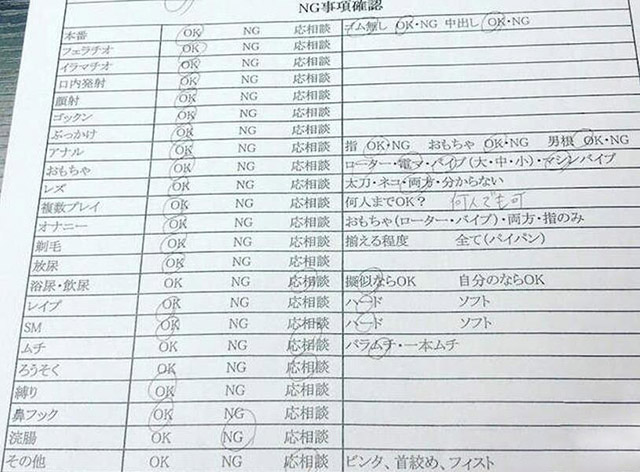 NG事項確認
本番 OK NG 応相談 ゴム無し OK・NG 中出し OK・NG
フェラチオ OK NG 応相談
イラマチオ OK NG 応相談
口内発射 OK NG 応相談
顔射 OK NG 応相談
ゴックン OK NG 応相談
ぶっかけ OK NG 応相談
アナル OK NG 応相談 指 OK・NG おもちゃ OK・NG 男根 OK・NG
おもちゃ OK NG 応相談 ローター・電マ・バイブ(大・中・小)・マシンバイブ
レズ OK NG 応相談 太刀・ネコ・両方・分からない
複数プレイ OK NG 応相談 何人までOK? 何人でも可
オナニー OK NG 応相談 おもちゃ(ローター・バイブ)・両方・指のみ
剃毛 OK NG 応相談 揃える程度 全て(パイパン)
放尿 OK NG 応相談
浴尿・飲尿 OK NG 応相談 擬似ならOK 自分のならOK
レイプ OK NG 応相談 ハード ソフト
SM OK NG 応相談 ハード ソフト
ムチ OK NG 応相談 バラムチ・一本ムチ
ろうそく OK NG 応相談
縛り OK NG 応相談
鼻フック OK NG 応相談
浣腸 OK NG 応相談
その他 OK NG 応相談 ビンタ、首絞め、フィスト